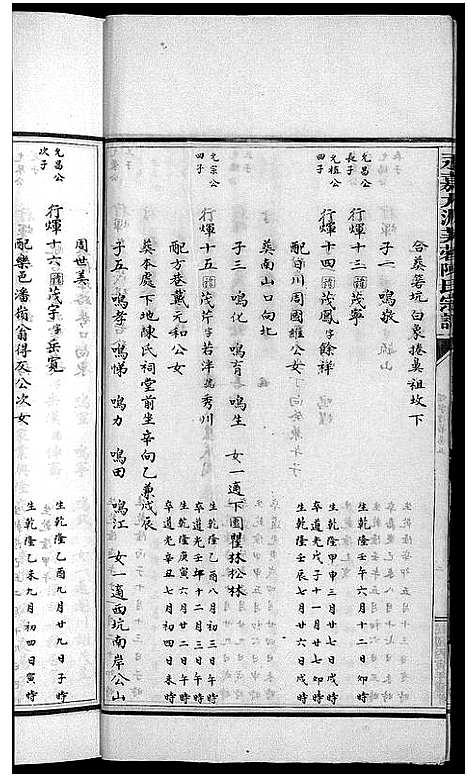 合葬箬坑白象捲鼻祖坟下
允昌公
長子
行煇十三 茂寧
生乾隆壬午六月十二日卯時
子一 鳴敬
允植公
四子
行煇十四 茂鳳字餘祥
生乾隆甲申三月廿七日戌時
卒道光戊子十一月廿七卯時
配百川周國維公女
生乾隆壬辰七月廿六日戌時
葬南山口向北
子三 鳴化 鳴育 鳴生 女一適下園瞿林松林
允宗公
四子
行煇十五 茂芹字若泮號秀川
生乾隆乙酉八月初三日午時
卒道光壬年十二月三日午時
配方巷戴元和公女
生乾隆庚寅六月廿二日午時
卒道光辛丑七月初四日未時
葬本處下地陳氏祠堂前坐辛向乙兼戌辰
子五 鳴孝 鳴悌 鳴力 鳴田 鳴江 女一適西坑南岸公山
周世美
允昌公
次子
行煇十六 茂宇字岳寬
生乾隆乙酉九月廿九日子時
配樂邑潘嶺翁得灰公次女
生乾隆乙未九月初四日寅時